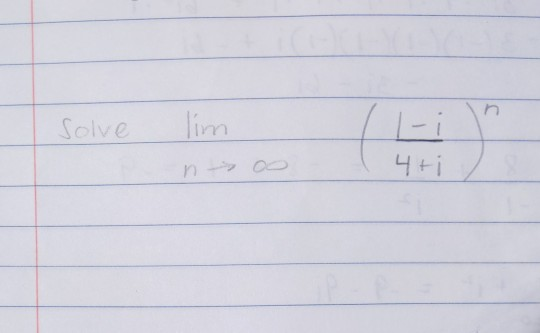 Solve lim n→∞ ((1-i)/(4+i))^n